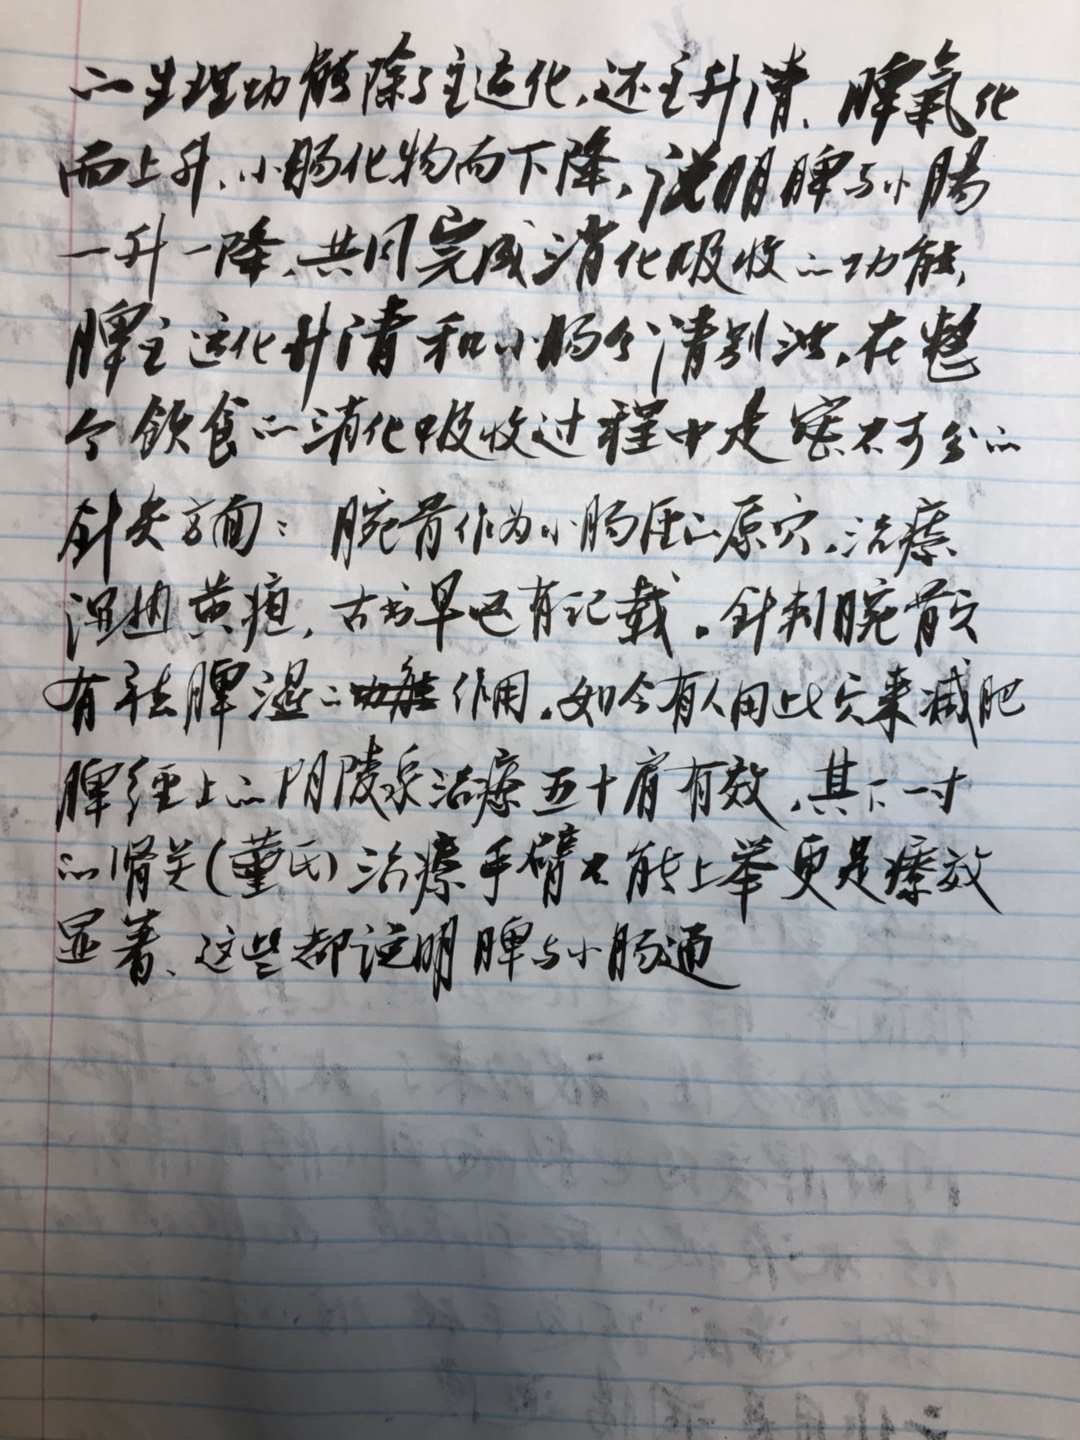 的生理功能除了主运化，还主升清、脾氧化
而上升、小肠化物而下降，说明脾与小肠
一升一降、共同完成消化吸收的功能，
脾主运化升清和小肠分清别浊，在整
个饮食的消化吸收过程中是密不可分的
针灸方面：腕骨作为小肠经的原穴，治疗
湿热黄疸，古书早已有记载。针刺腕骨穴
有祛脾湿的作用，如今有人用此穴来减肥
脾经上的阴陵泉治疗五十肩有效，其下一寸
的肾关（董氏）治疗手臂不能上举更是疗效
显著、这些都说明脾与小肠通